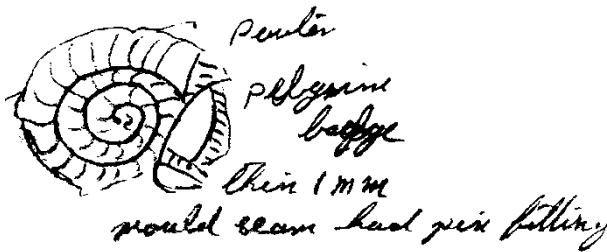 pewter
pilgrim
badge
thin 1 mm
mould seam had pin fitting